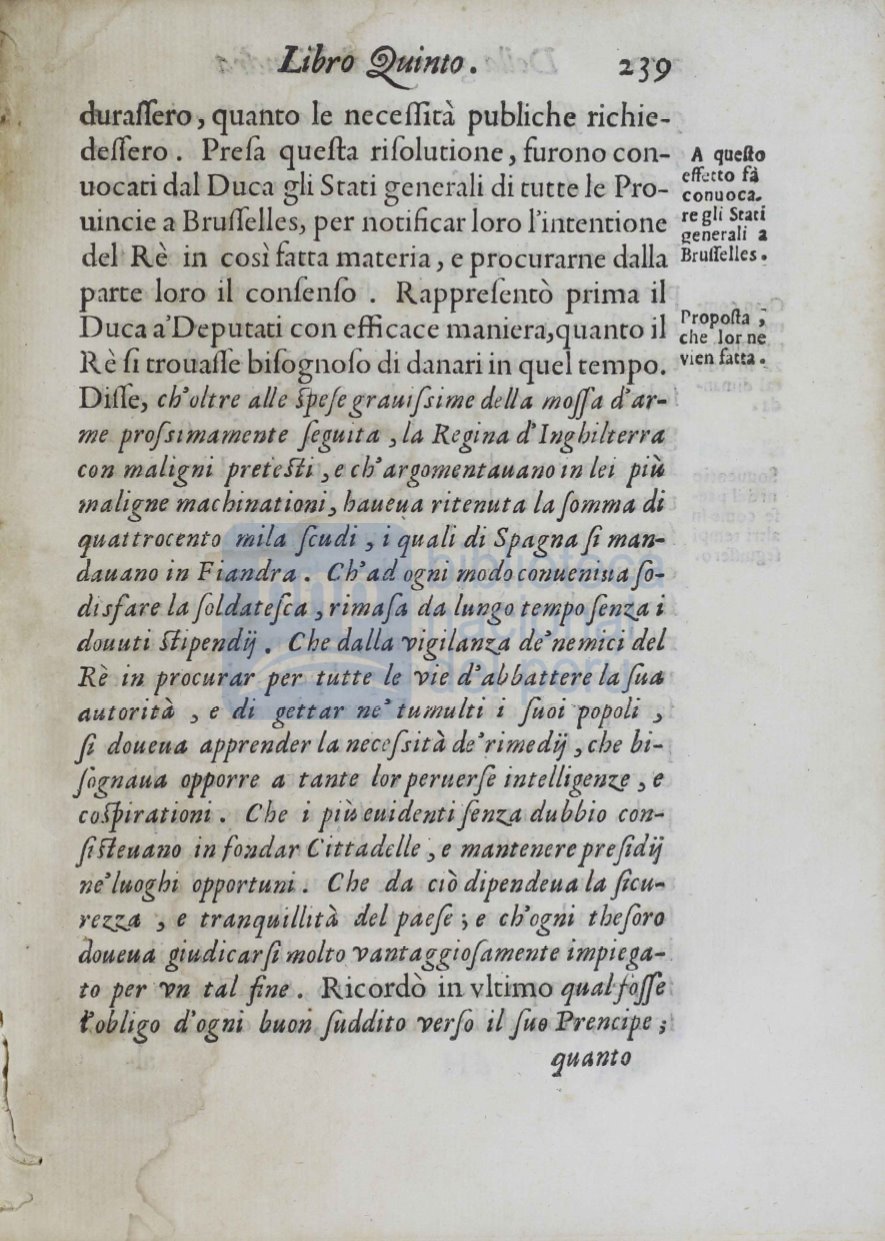 Libro Quinto. 239
duraſſero, quanto le neceſſità publiche richie-
deſſero. Preſa queſta riſolutione, furono con-
uocati dal Duca gli Stati generali di tutte le Pro-
uincie a Bruſſelles, per notificar loro l'intentione
del Rè in così fatta materia, e procurarne dalla
parte loro il conſenſo. Rappreſentò prima il
Duca a'Deputati con efficace maniera, quanto il
Rè ſi trouaſſe biſognoſo di danari in quel tempo.
Diſſe, ch'oltre alle ſpeſe grauiſsime della moſſa d'ar-
me proſsimamente ſeguita, la Regina d'Inghilterra
con maligni preteſti, e ch'argomentauano in lei più
maligne machinationi, haueua ritenuta la ſomma di
quattrocento mila ſcudi, i quali di Spagna ſi man-
dauano in Fiandra. Ch'ad ogni modo conueniua ſo-
disfare la ſoldateſca, rimaſa da lungo tempo ſenza i
douuti ſtipendij. Che dalla vigilanza de'nemici del
Rè in procurar per tutte le vie d'abbattere la ſua
autorità, e di gettar ne'tumulti i ſuoi popoli,
ſi doueua apprender la neceſsità de'rimedij, che bi-
ſognaua opporre a tante lor peruerſe intelligenze, e
coſpirationi. Che i più euidenti ſenza dubbio con-
ſiſteuano in fondar Cittadelle, e mantenere preſidij
ne'luoghi opportuni. Che da ciò dipendeua la ſicu-
rezza, e tranquillità del paeſe; e ch'ogni theſoro
doueua giudicarſi molto vantaggioſamente impiega-
to per vn tal fine. Ricordò in vltimo qual foſſe
l'obligo d'ogni buon ſuddito verſo il ſuo Prencipe;
quanto
A queſto
effetto fà
conuoca-
re gli Stati
generali a
Bruſſelles.
Propoſta,
che lor ne
vien fatta.